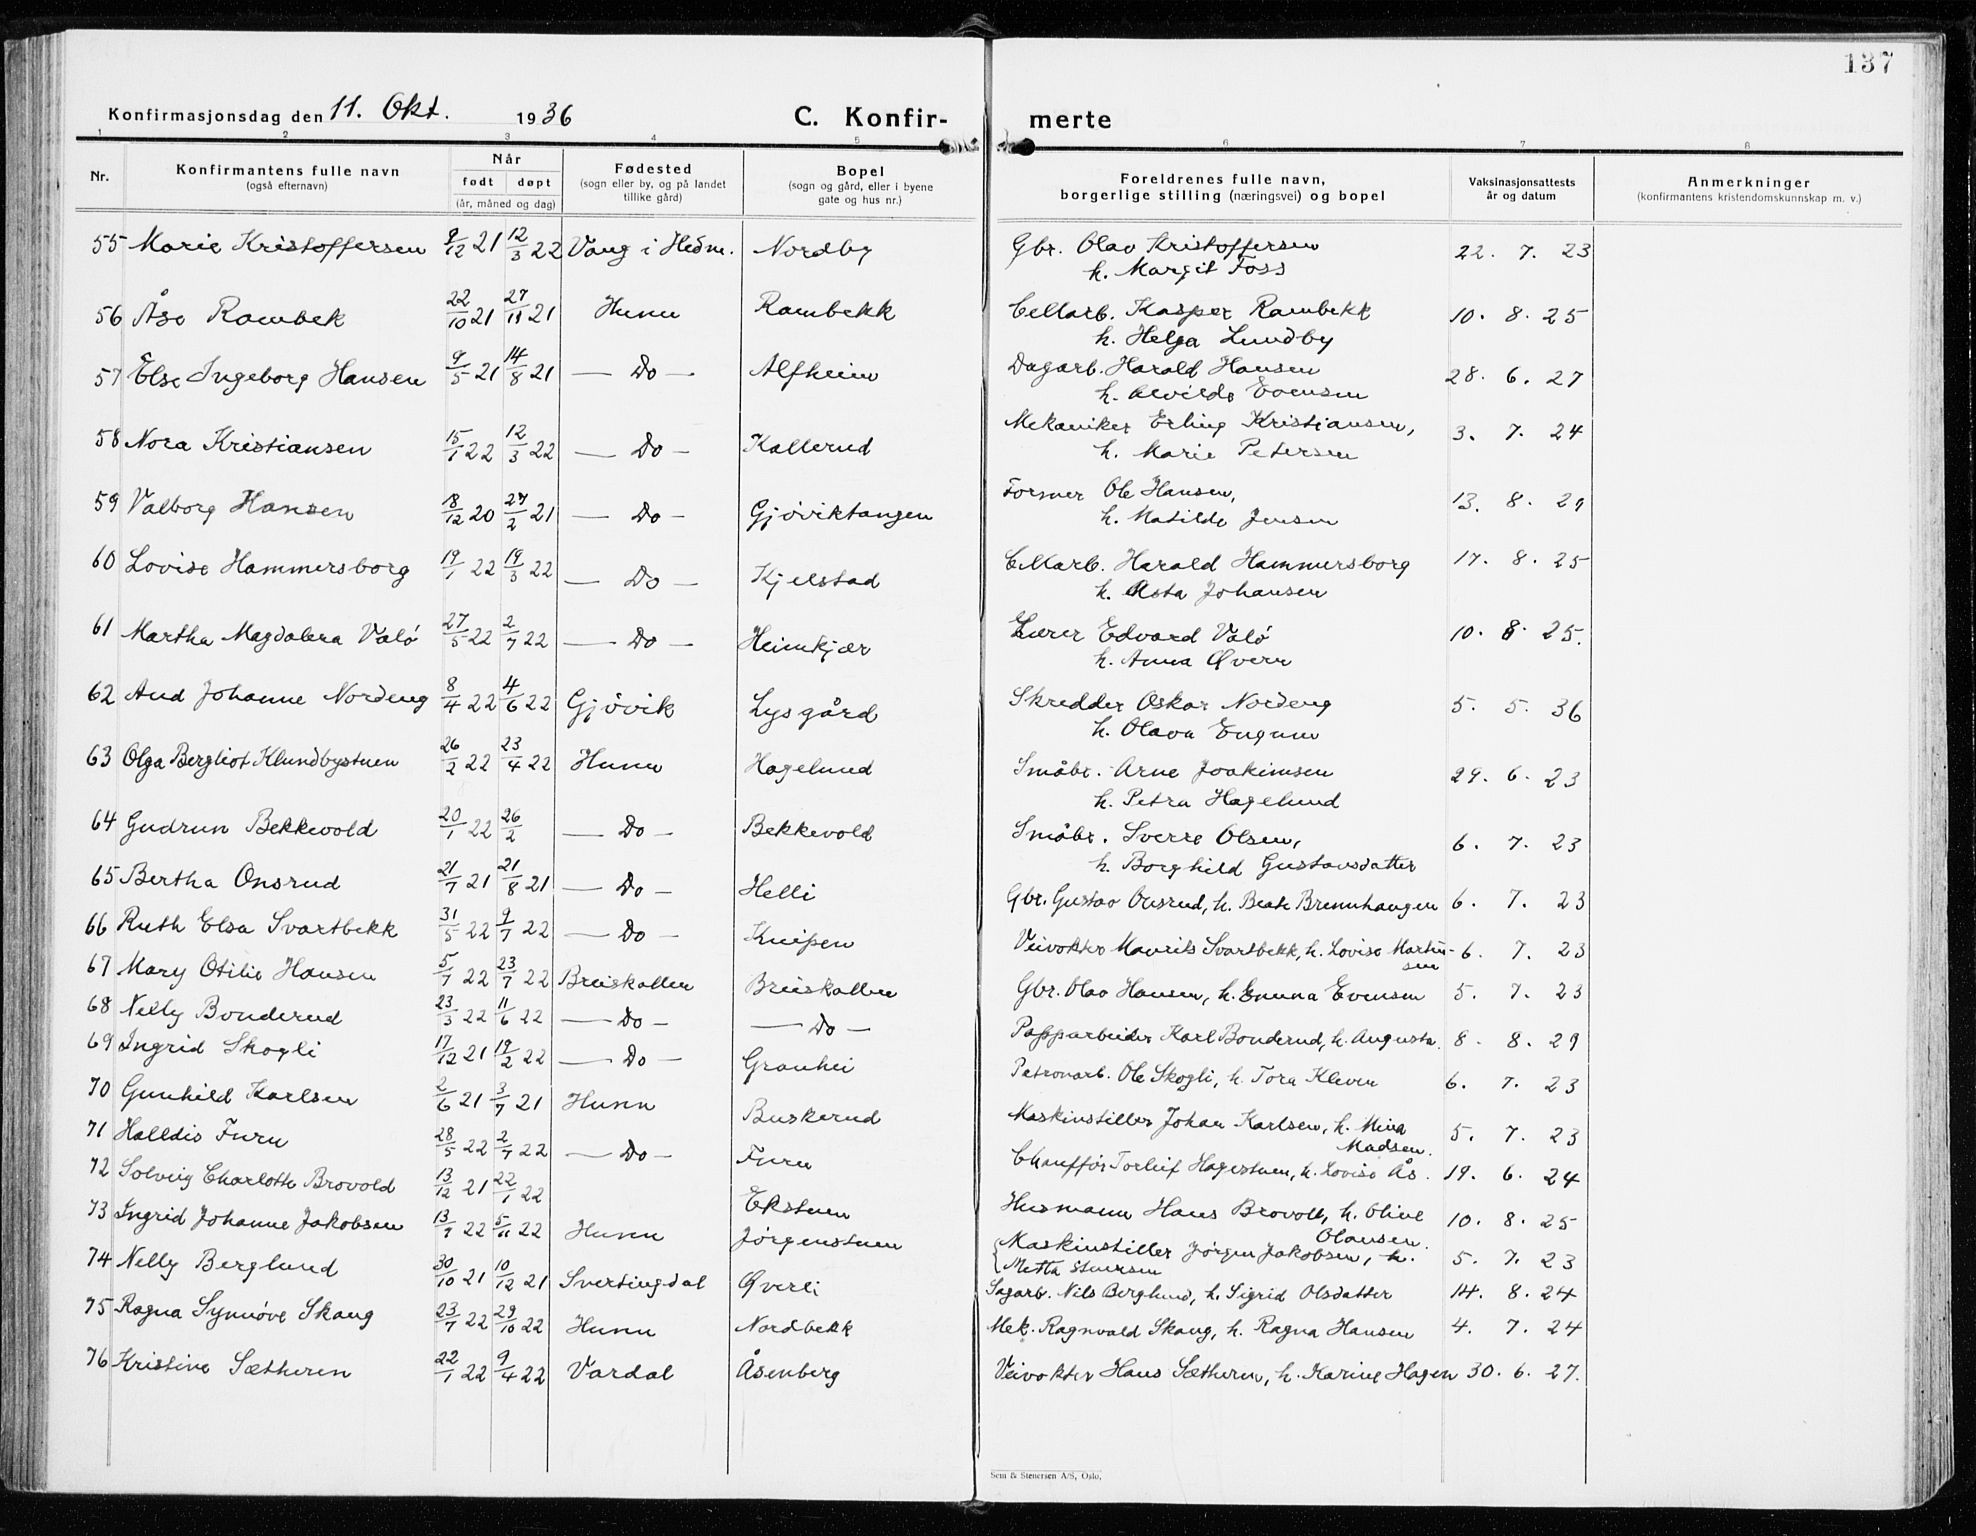 137
Konfirmasjonsdag den 11. Okt. 1936 C. Konfir- merte
1 2 3 4 5 6 7 8
Nr.
Konfirmantens fulle navn
(også efternavn)
Når
født døpt
(år, måned og dag)
Fødested
(sogn eller by, og på landet
tillike gård)
Bopel
(sogn og gård, eller i byene
gate og hus nr.)
Foreldrenes fulle navn,
borgerlige stilling (næringsvei) og bopel
Vaksinasjonsattests
år og datum
Anmerkninger
(konfirmantens kristendomskunnskap m. v.)
55 Marie Kristoffersen 9/12 21 12/3 22 Vang i Hedm. Nordby Gbr. Olav Kristoffersen 22. 7. 23
h. Margit Foss
56 Åse Rambek 22/10 21 27/11 21 Hunn Rambekk Cellarb. Kasper Rambekk 10. 8. 25
h. Helga Lundby
57 Else Ingeborg Hansen 9/5 21 14/8 21 — Do — Alfheim Dagarb. Harald Hansen 28. 6. 27
h. Alvilde Evensen
58 Nora Kristiansen 15/1 22 12/3 22 — Do — Kallerud Mekaniker Erling Kristiansen, 3. 7. 24
h. Marie Petersen
59 Valborg Hansen 18/12 20 27/2 21 — Do — Gjøviktangen Former Ole Hansen, 13. 8. 29
h. Matilde Jensen
60 Lovise Hammersborg 19/1 22 19/3 22 — Do — Kjelstad Cellarb. Harald Hammersborg 17. 8. 25
h. Asta Johansen
61 Martha Magdalena Valø 27/5 22 2/7 22 — Do — Heimkjær Lærer Edvard Valø 10. 8. 25.
h. Anna Øvern
62 Aud Johanne Nordeng 8/4 22 4/6 22 Gjøvik Lysgård Skredder Oskar Nordeng 5. 5. 36
h. Olava Engum
63 Olga Bergliot Klundbystuen 26/2 22 23/4 22 Hunn Hagelund Småbr. Arne Joakimsen 29. 6. 23
h. Petra Hagelund
64 Gudrun Bekkevold 20/1 22 26/2 — Do — Bekkevold Småbr. Sverre Olsen, 6. 7. 23
h. Borghild Gustavsdatter
65 Bertha Onsrud 21/7 21 21/8 21 — Do — Helli Gbr. Gustav Onsrud, h. Beate Brennhaugen 6. 7. 23
66 Ruth Elsa Svartbekk 31/5 22 9/7 22 — Do — Knipen Veivokter Maurits Svartbekk, h. Lovise Martin- 6. 7. 23
sen
67 Mary Otilie Hansen 5/7 22 23/7 22 Breiskallen Breiskallen Gbr. Olav Hansen, h. Emma Evensen 5. 7. 23
68 Nelly Bonderud 23/3 22 11/6 22 — Do — — Do — Papparbeider Karl Bonderud, h. Augusta. 8. 8. 29
69 Ingrid Skogli 17/12 21 19/2 22 — Do — Granhei Petronarb. Ole Skogli, h. Tora Kleven 6. 7. 23
70 Gunhild Karlsen 2/6 21 3/7 21 Hunn Buskerud Maskinstiller Johan Karlsen, h. Mina 5. 7. 23
Madsen.
71 Halldis Furu 28/5 22 2/7 22 — Do — Furu Chauffør Torleif Hagestuen, h. Lovise Ås. 19. 6. 24
72 Solveig Charlotte Brovold 13/12 21 22/1 22 Ekstuen Husmann Hans Brovold, h. Olive 10. 8. 25
Olausen.
73 Ingrid Johanne Jakobsen 13/9 22 5/11 22 Hunn Jørgenstuen Maskinstiller Jørgen Jakobsen, h. 5. 7. 23
Metta Steensen
74 Nelly Berglund 30/10 21 10/12 21 Svertingdal Øverli Sagarb. Nils Berglund, h. Sigrid Olsdatter 14. 8. 24
75 Ragna Synnøve Skaug 23/7 22 29/10 22 Hunn Nordbekk Mek. Ragnvald Skaug, h. Ragna Hansen 4. 7. 24
76 Kristine Sætheren 22/1 22 9/4 22 Vardal Åsenberg Veivokter Hans Sætheren, h. Karine Hagen 30. 6. 27.
Sem & Stenersen A/S, Oslo.